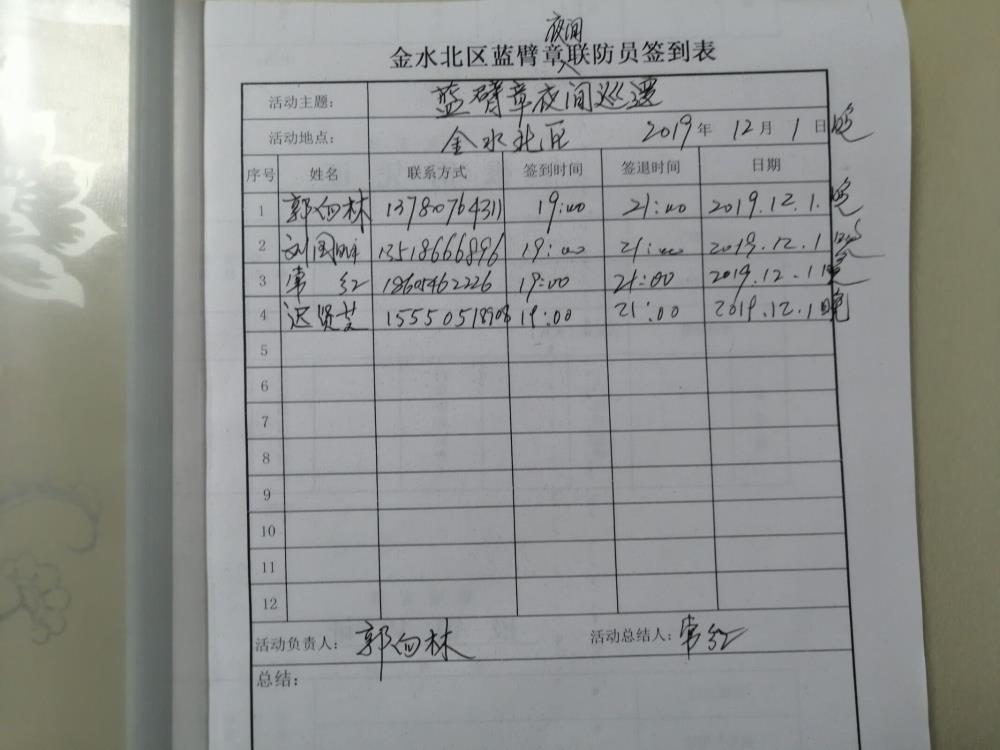 夜间
金水北区蓝臂章联防员签到表
活动主题: 蓝臂章夜间巡逻
活动地点: 金水北区 2019年12月1日晚
序号 姓名 联系方式 签到时间 签退时间 日期
1 郭向林 13780764311 19:00 21:00 2019.12.1.晚
2 刘国 13518666896 19:00 21:00 2019.12.1晚
3 常红 19:00 21:00 2019.12.1晚
4 迟贤芝 19:00 21:00 2019.12.1晚
5
6
7
8
9
10
11
12
活动负责人: 郭向林 活动总结人: 常红
总结: